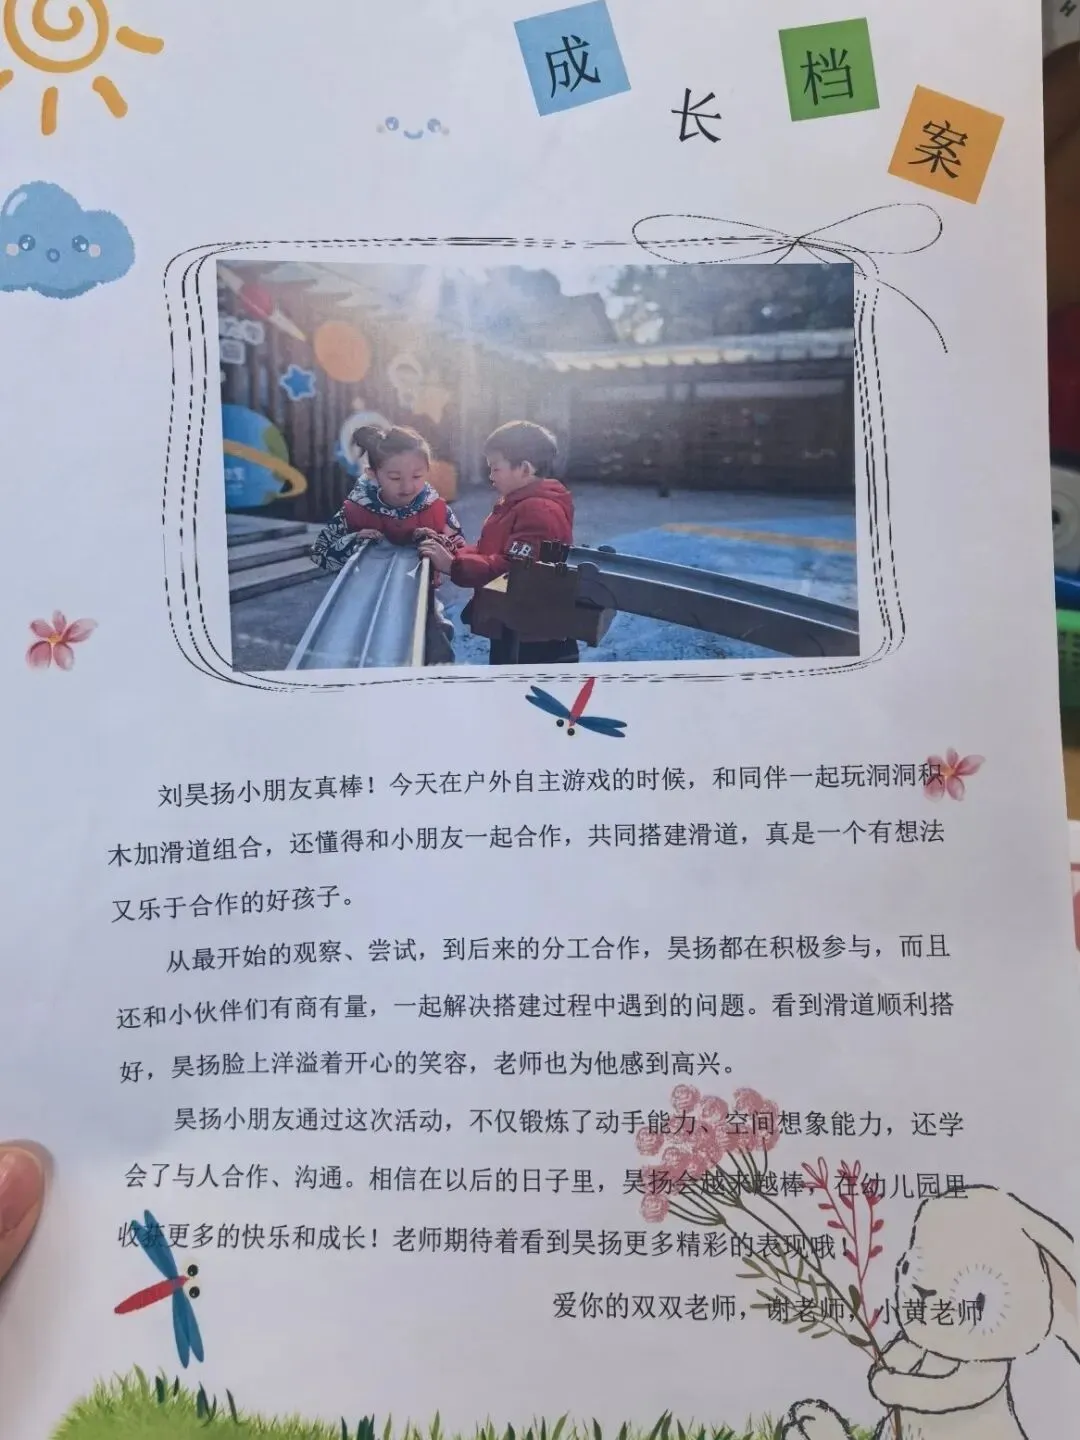 成长档案
LB
刘昊扬小朋友真棒！今天在户外自主游戏的时候，和同伴一起玩洞洞积
木加滑道组合，还懂得和小朋友一起合作，共同搭建滑道，真是一个有想法
又乐于合作的好孩子。
从最开始的观察、尝试，到后来的分工合作，昊扬都在积极参与，而且
还和小伙伴们有商有量，一起解决搭建过程中遇到的问题。看到滑道顺利搭
好，昊扬脸上洋溢着开心的笑容，老师也为他感到高兴。
昊扬小朋友通过这次活动，不仅锻炼了动手能力、空间想象能力，还学
会了与人合作、沟通。相信在以后的日子里，昊扬会越来越棒，在幼儿园里
收获更多的快乐和成长！老师期待着看到昊扬更多精彩的表现哦！
爱你的双双老师，谢老师，小黄老师